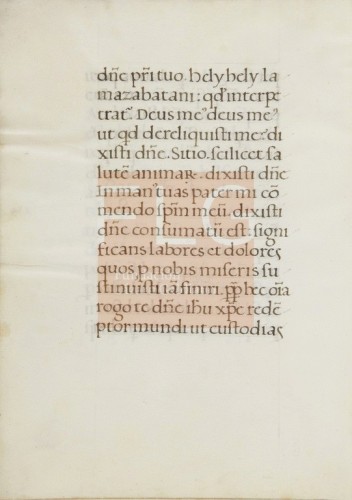 dñe pr̃i tuo. hely hely la
mazabatani: qđ interpe
trat᷑. Deus me⁹ deus me⁹
ut qd dereliquisti me: di
xisti dñe. Sitio. scilicet sa
lutẽ animar. dixisti dñe
In man⁹ tuas pater mi cõ
mendo sp̃m meũ. dixisti
dñe consumatũ est: signi
ficans labores et dolores
quos p nobis miseris su
stinuisti iã finiri. pp̃ hec oĩa
rogo te dñe ihu xp̃e redẽ
ptor mundi ut custodias